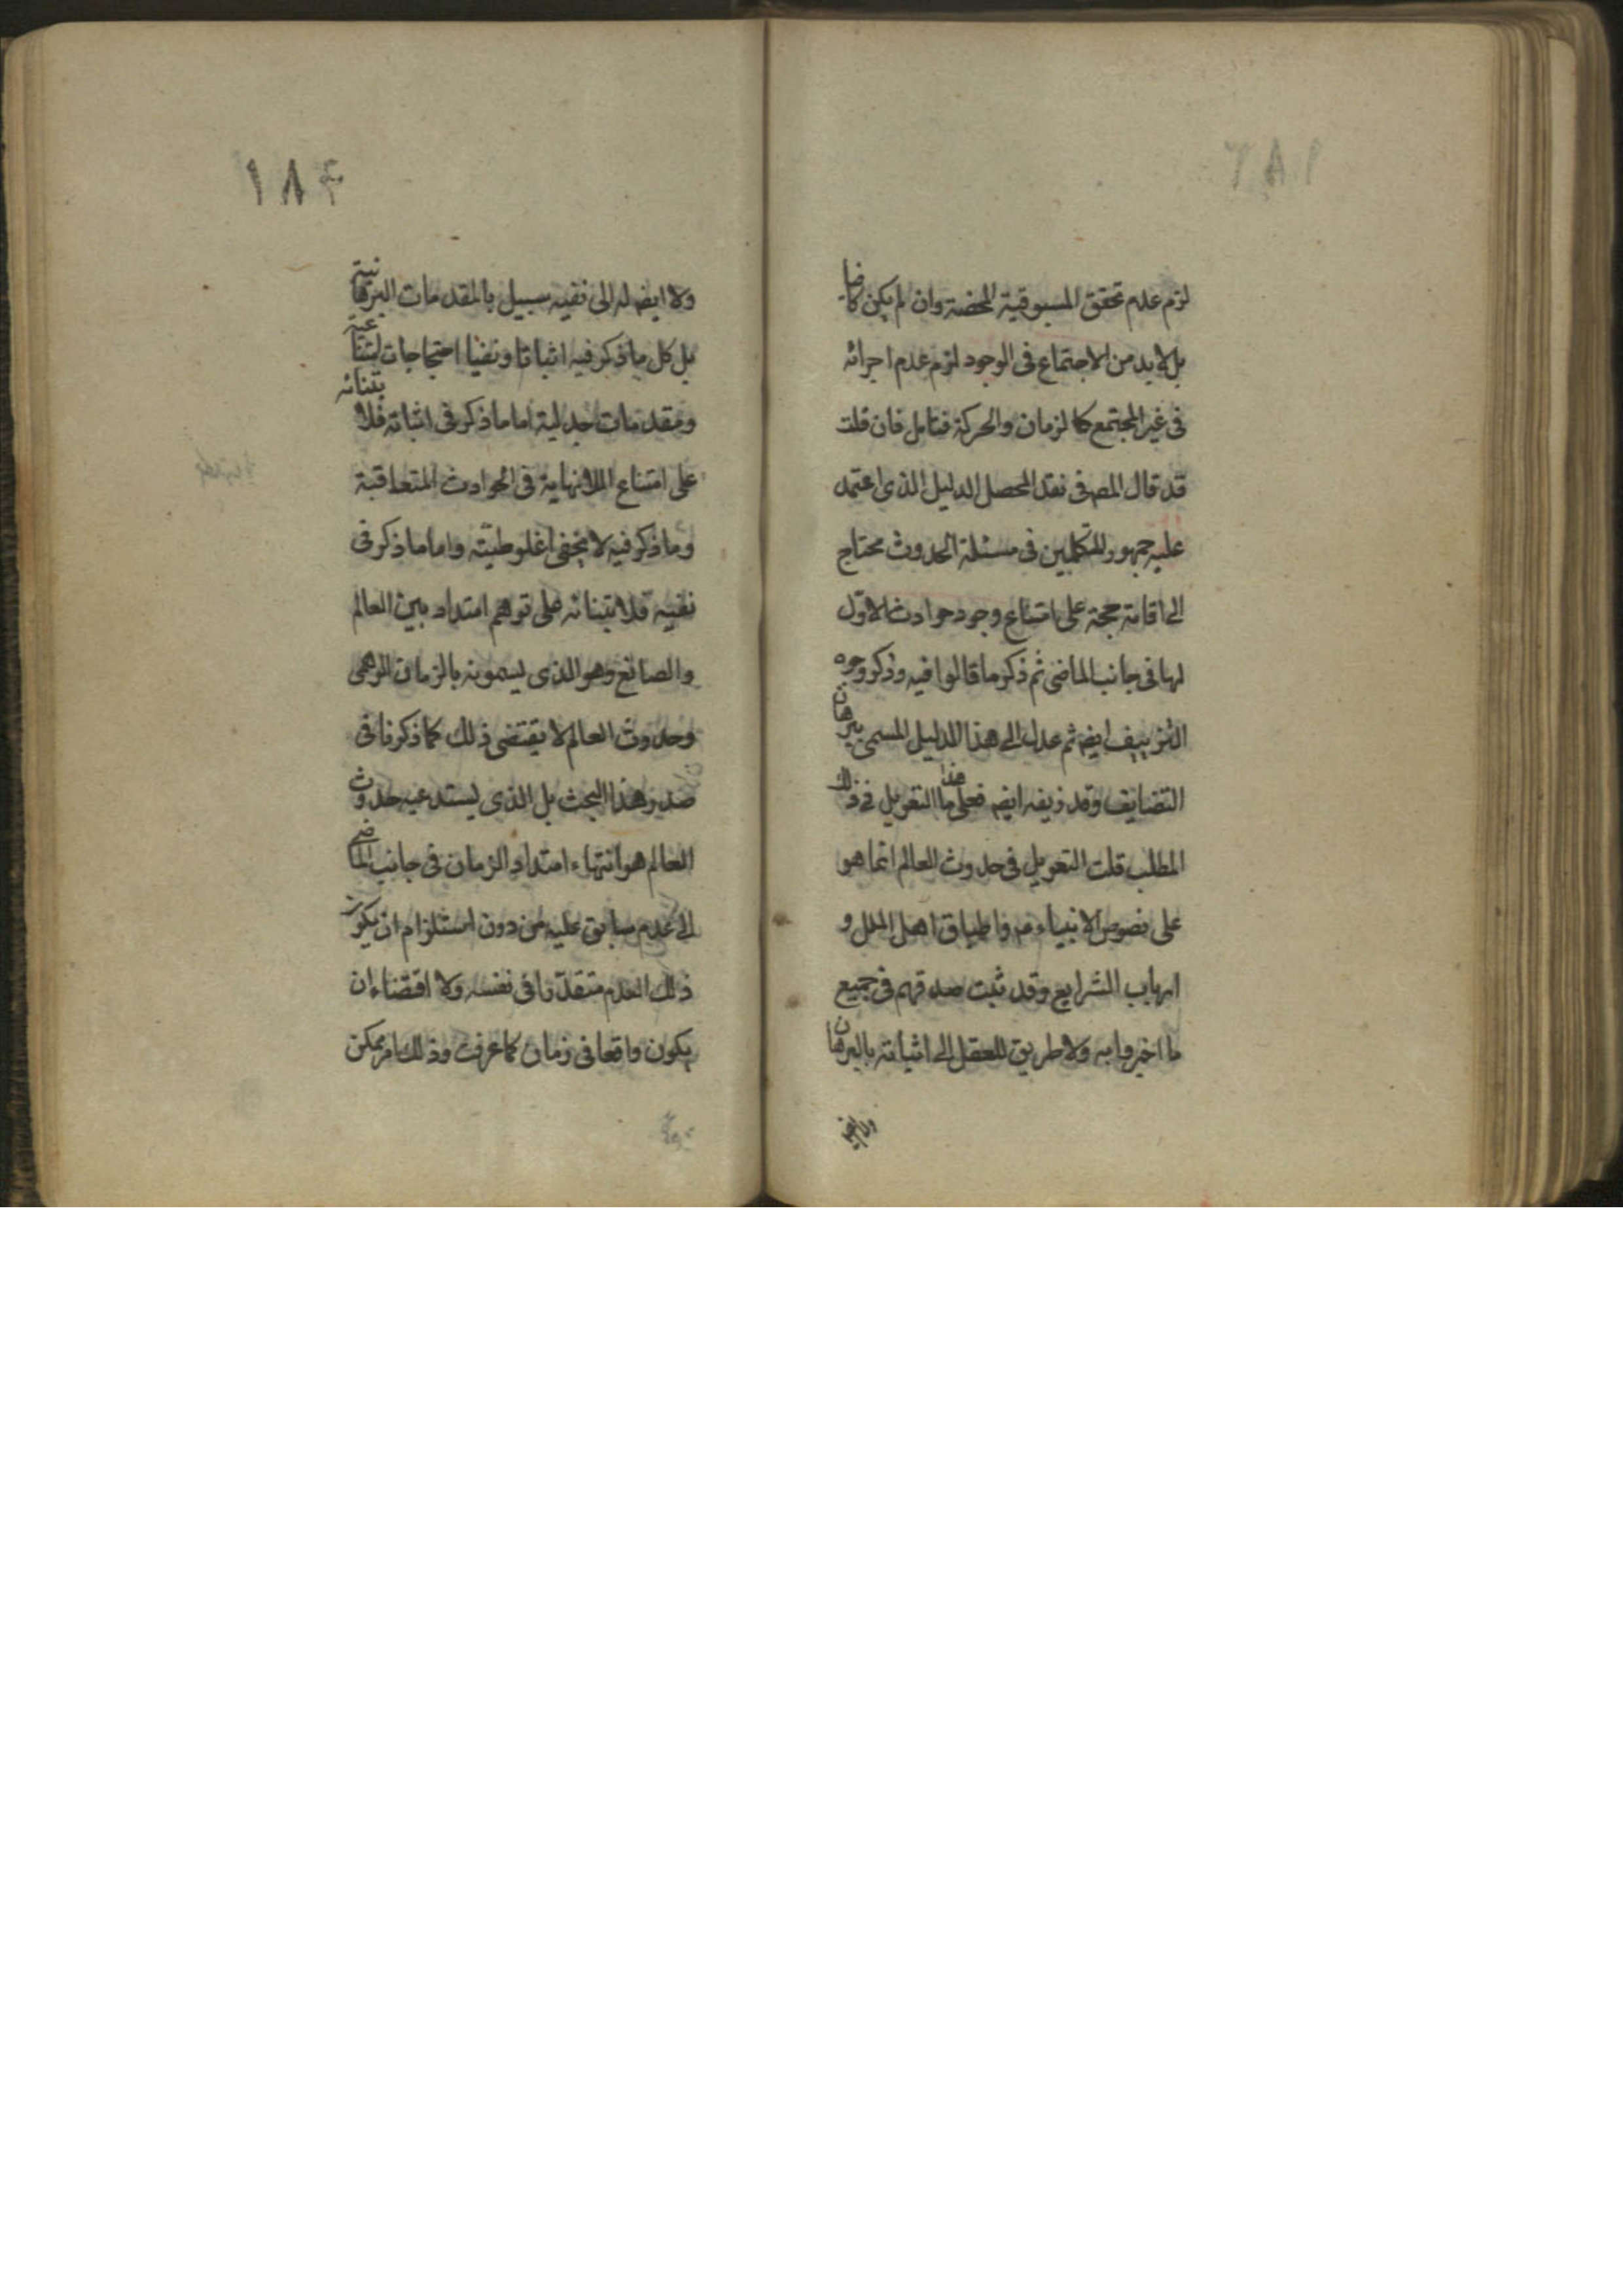 لزم عدم تحقق المسبوقية المحضة وان لم يكن كافيا
بل لا بد من الاجتماع فى الوجود لزم عدم اجرائه
فى غير المجتمع كالزمان والحركة فتامل فان قلت
قد قال المص فى نقد المحصل الدليل الذى اعتمد
عليه جمهور المتكلمين فى مسئلة الحدوث محتاج
الى اقامة حجة على امتناع وجود حوادث لا اوّل
لها فى جانب الماضى ثم ذكر ما قالوا فيه وذكر وجوه
التزييف ايضه ثم عدل الى هذا الدليل المسمى ببرهان
التضايف وقد زيفه ايضه فعلى ما هذا التعويل فى ذلك
المطلب قلت التعويل فى حدوث العالم انما هو
على نصوص الانبياء م واطباق اهل الملل و
ارباب الشرايع وقد ثبت صدقهم فى جميع
ما اخبروا به ولا طريق للعقل الى اثباته بالبرهان
ولا ايضه
١٨٤
ولا ايضه له الى نفيه سبيل بالمقدمات البرهانية
بل كل ما ذكر فيه اثباتا ونفيا احتجاجات
ومقدمات جدلية اما ما ذكر فى اثباته فلابتنائه
على امتناع اللانهاية فى الحوادث المتعاقبة
وما ذكر فيه لا يخفى اغلوطيته واما ما ذكر فى
نفيه فلابتنائه على توهم امتداد بين العالم
والصانع وهو الذى يسمونه بالزمان الوهمى
وحدوث العالم لا يقتضى ذلك كما ذكرنا فى
صدر هذا البحث بل الذى يستدعيه حدوث
العالم هو انتهاء امتداد الزمان فى جانب الماضى
الى عدم سابق عليه من دون استلزام ان يكون
ذلك العدم متقدّرا فى نفسه ولا اقتضاء ان
يكون واقعا فى زمان كما عرفت وذلك امر ممكن